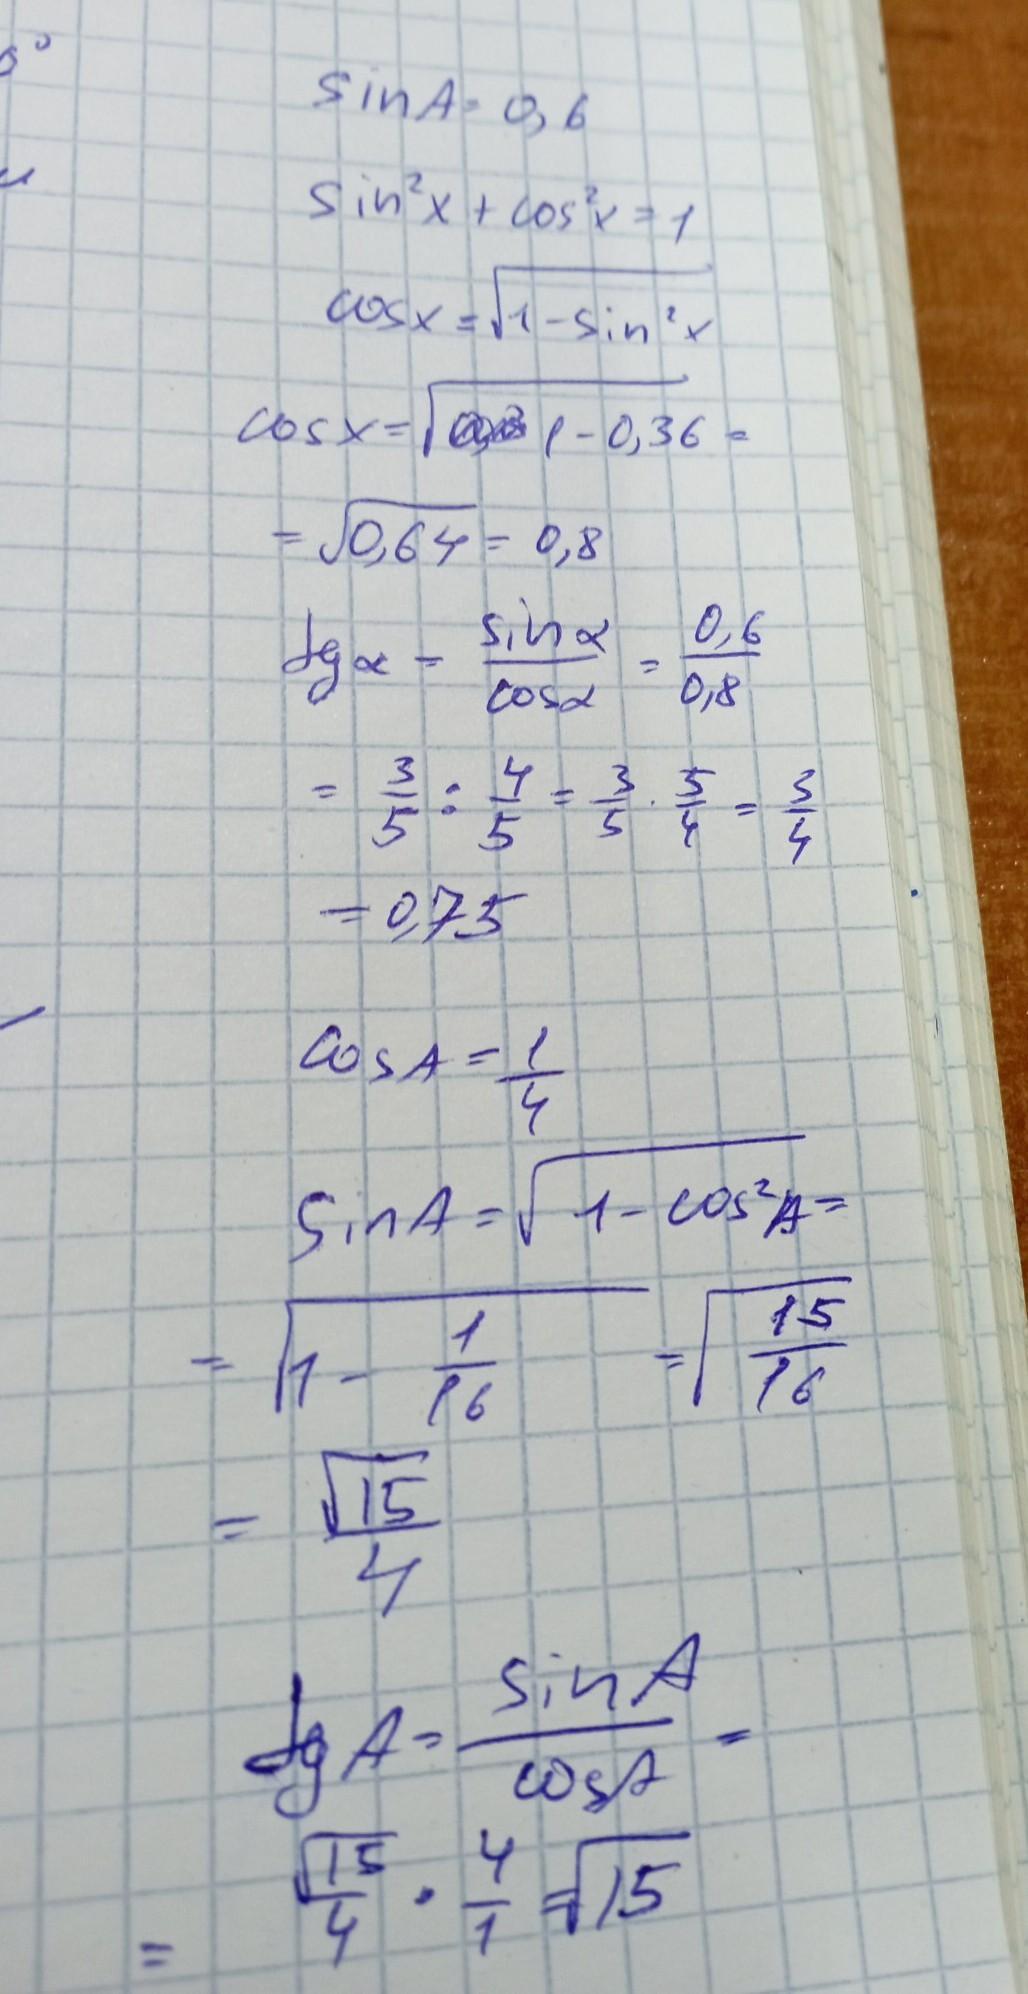 sinA = 0,6
sin²x + cos²x = 1
cosx = √(1 - sin²x)
cosx = √(1 - 0,36) =
= √0,64 = 0,8
tgα = sinα/cosα = 0,6/0,8
= 3/5 : 4/5 = 3/5 · 5/4 = 3/4
= 0,75
cosA = 1/4
sinA = √(1 - cos²A) =
= √(1 - 1/16) = √(15/16)
= √15/4
tgA = sinA/cosA =
= √15/4 · 4/1 = √15